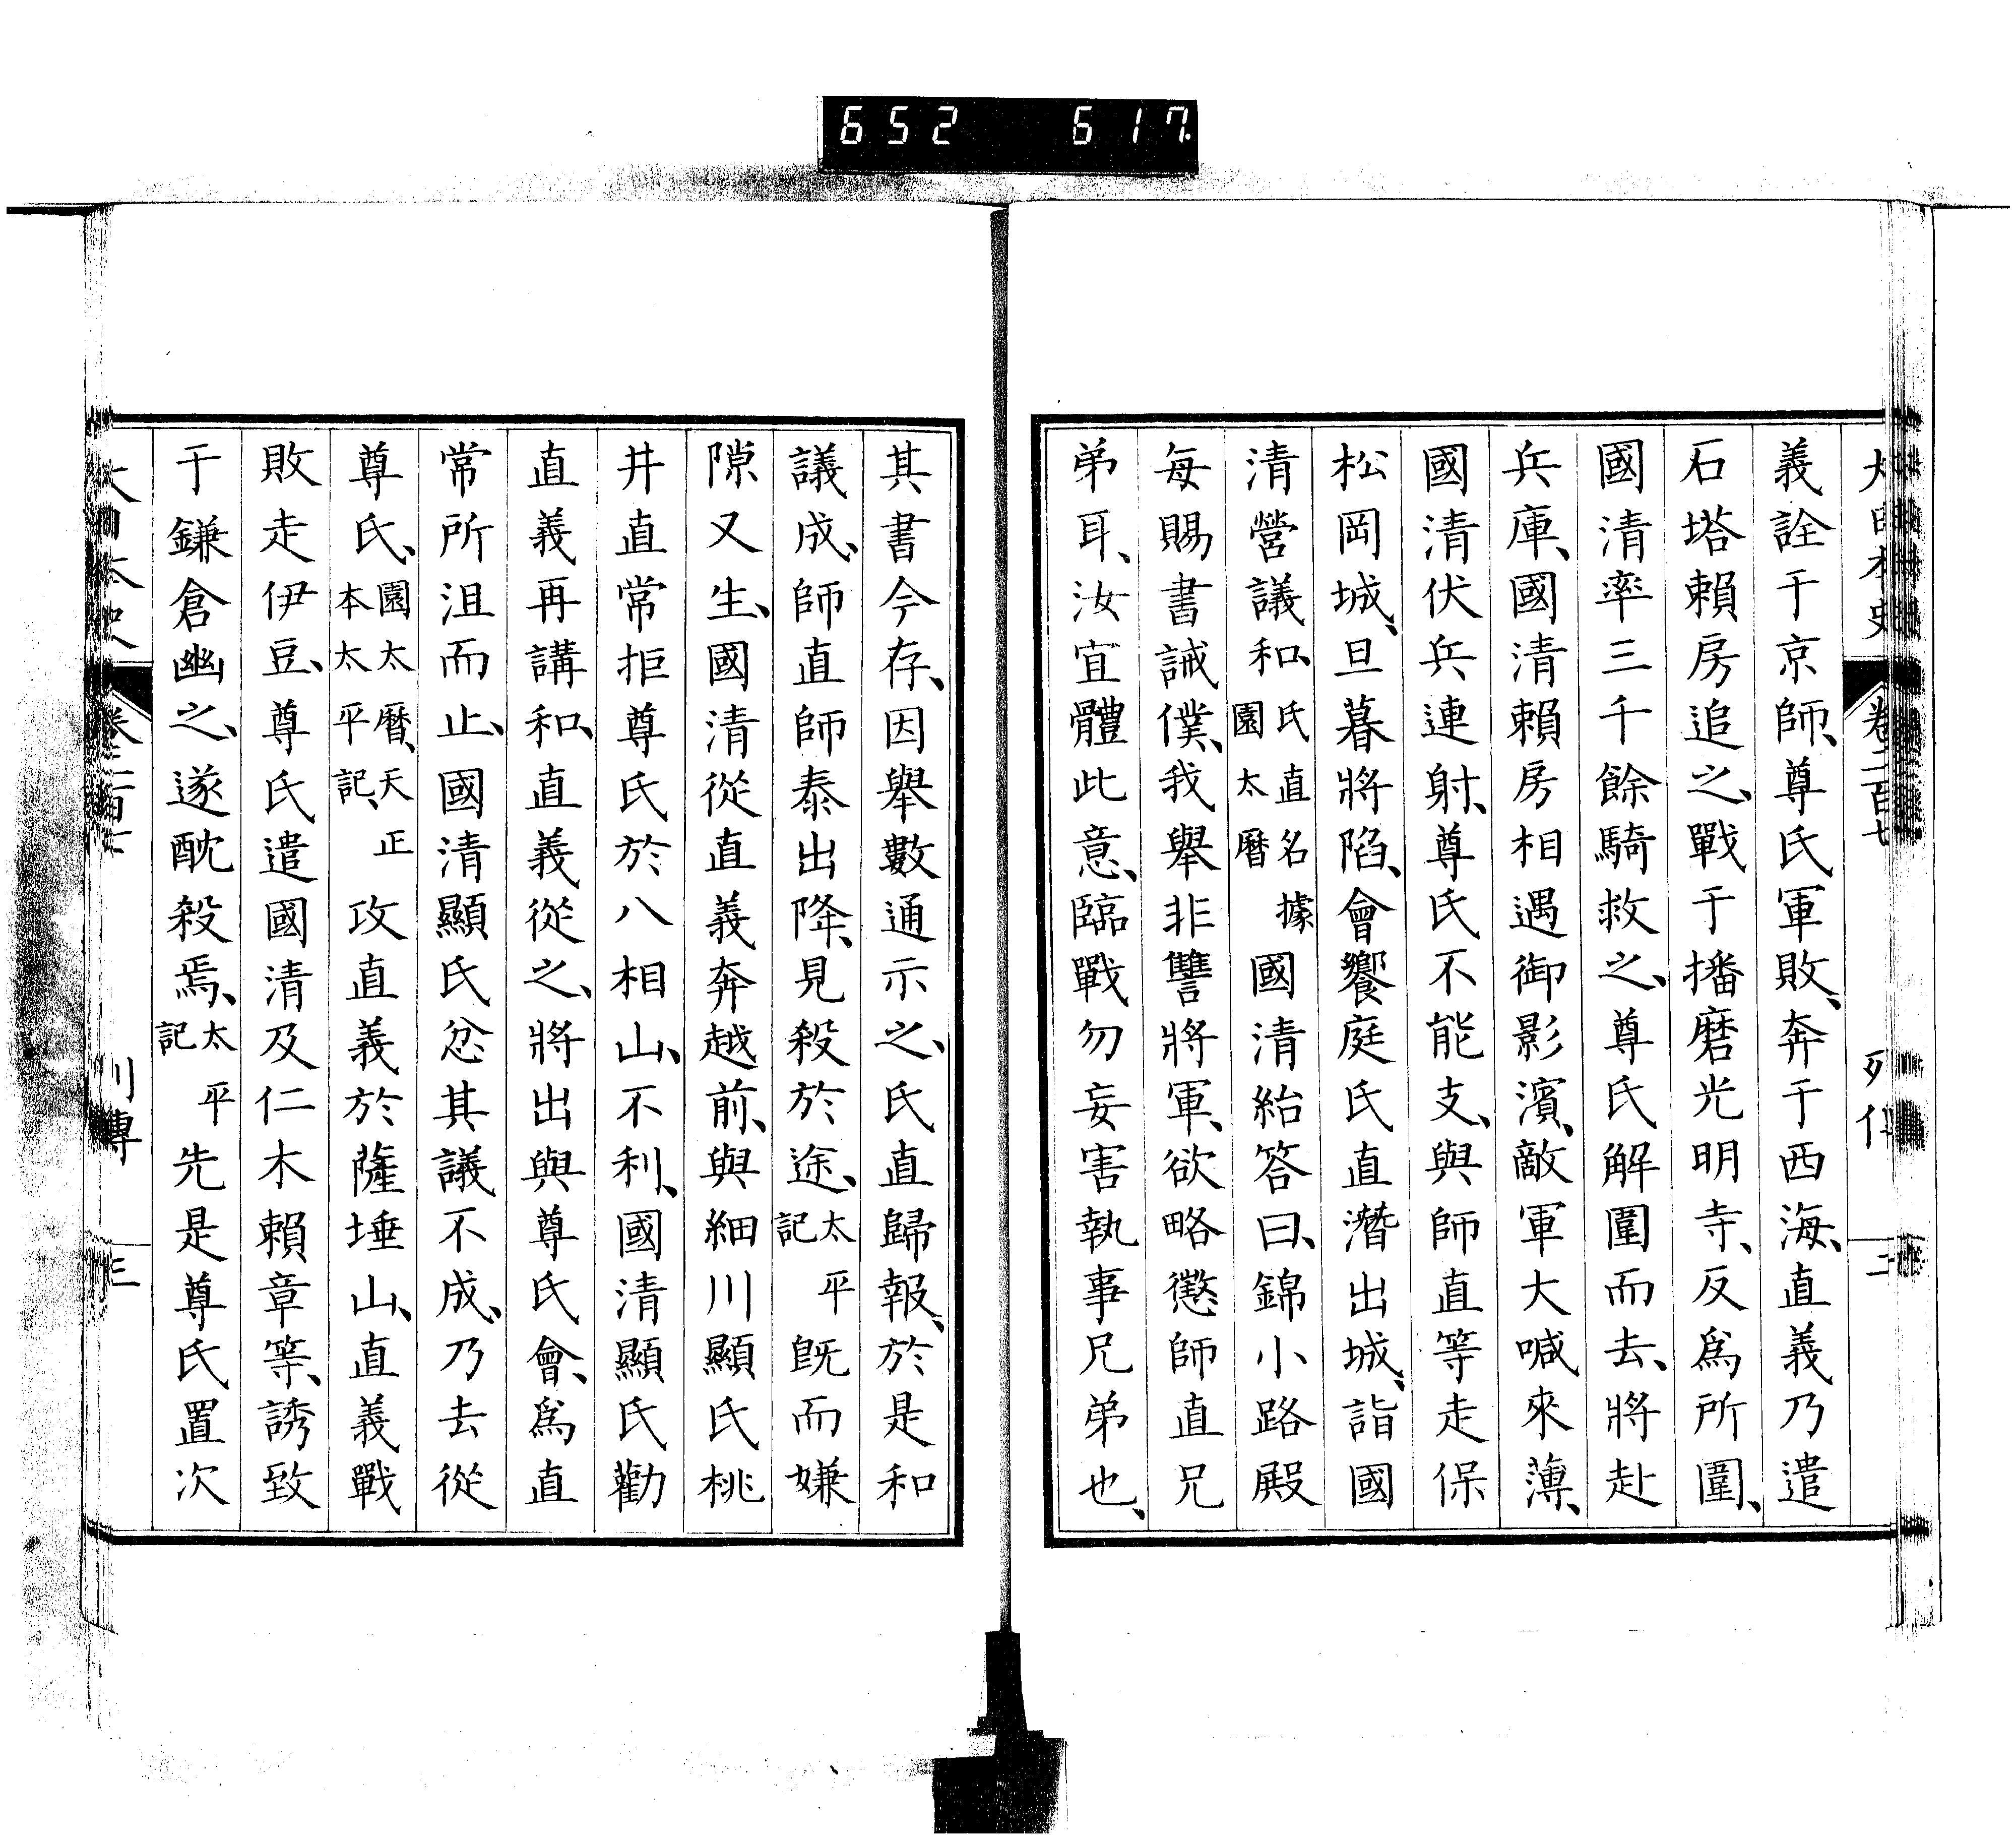 652 617
義詮于京師、尊氏軍敗、奔于西海、直義乃遣
石塔賴房追之、戰于播磨光明寺、反爲所圍、
國清率三千餘騎救之、尊氏解圍而去、將赴
兵庫、國清賴房相遇御影濱、敵軍大喊來薄、
國清伏兵連射、尊氏不能支、與師直等走保
松岡城、旦暮將陷、會饗庭氏直潛出城、詣國
清營議和、氏直名據園太曆國清紿答曰、錦小路殿
每賜書誡僕、我舉非讐將軍、欲略懲師直兄
弟耳、汝宜體此意、臨戰勿妄害執事兄弟也、
其書今存、因舉數通示之、氏直歸報、於是和
議成、師直師泰出降、見殺於途、太平記既而嫌
隙又生、國清從直義奔越前、與細川顯氏桃
井直常拒尊氏於八相山、不利、國清顯氏勸
直義再講和、直義從之、將出與尊氏會、爲直
常所沮而止、國清顯氏忿其議不成、乃去從
尊氏、園太曆、天正本太平記、攻直義於薩埵山、直義戰
敗走伊豆、尊氏遣國清及仁木賴章等、誘致
于鎌倉幽之、遂酖殺焉、太平記先是尊氏置次